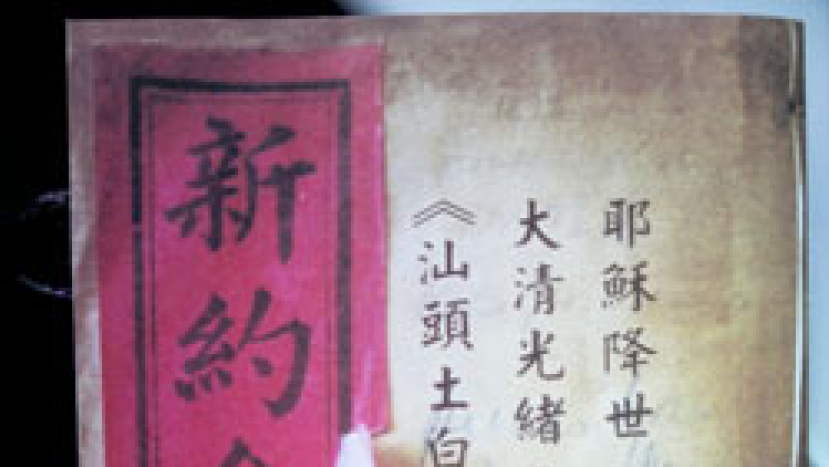 耶穌降世
大清光緒
《汕頭土白
新約